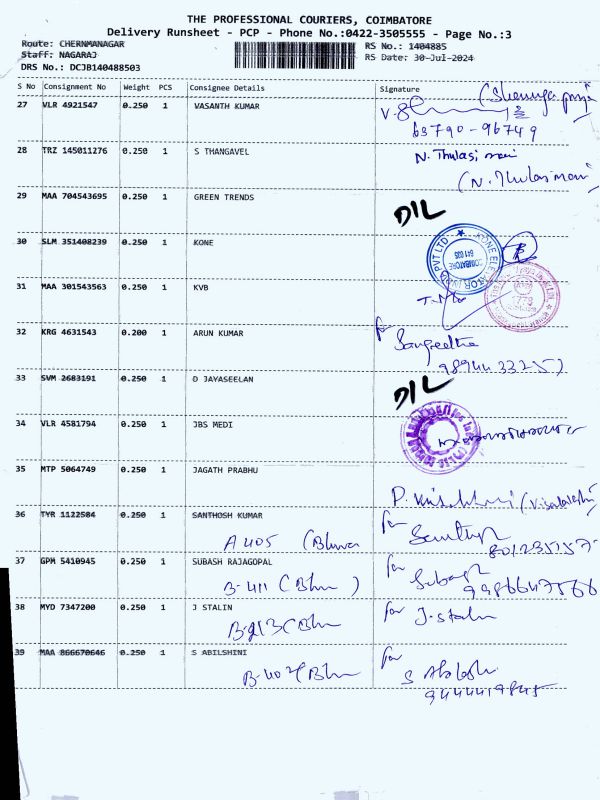 THE PROFESSIONAL COURIERS, COIMBATORE
Delivery Runsheet - PCP - Phone No.:0422-3505555 - Page No.:3
Route: CHERNMANAGAR
Staff: NAGARAJ
DRS No.: DCJB140488503
RS No.: 1404885
RS Date: 30-Jul-2024
S No Consignment No Weight PCS Consignee Details Signature
27 VLR 4921547 0.250 1 VASANTH KUMAR
63790-96749
28 TRZ 145011276 0.250 1 S THANGAVEL N. Thulasi mani
(N. Thulasimani)
29 MAA 704543695 0.250 1 GREEN TRENDS
D/L
30 SLM 351408239 0.250 1 KONE
31 MAA 301543563 0.250 1 KVB
32 KRG 4631543 0.200 1 ARUN KUMAR
for Sangeetha
33 SVM 2683191 0.250 1 D JAYASEELAN
D/L
34 VLR 4581794 0.250 1 JBS MEDI
35 MTP 5064749 0.250 1 JAGATH PRABHU
36 TYR 1122584 0.250 1 SANTHOSH KUMAR for
A 405
37 GPM 5410945 0.250 1 SUBASH RAJAGOPAL for Subash
B-411 (Bhm )
38 MYD 7347200 0.250 1 J STALIN for J. Stalin
B-213 (Bhm
39 MAA 866670646 0.250 1 S ABILSHINI for
B-402 (Bhm
9444419845